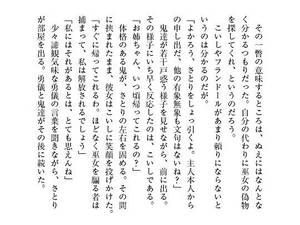 その一瞥の意味するところは、ぬえにはなんとな
く分かるつもりだった。自分の代わりに巫女の偽物
を探してくれ、というのだろう。
こいしやフランドールがあまり頼りにならないと
いうのは分かるのだが。
「よかろう、さとりをしょっ引くよ。主人本人から
の申し出だ、他の有象無象も文句はないね？」
鬼達が若干戸惑う様子を見せながら、前に出る。
その様子にいち早く反応したのは、こいしである。
「お姉ちゃん、いつ帰ってこれるの？」
体格のある鬼が、さとりの左右を固める。その間
に挟まれたまま、彼女はこいしに笑顔を投げかけた。
「すぐに帰ってこれるわ。ほどなく巫女を騙る者は
捕まって、私は解放されるでしょう」
「私にはそれがあるとは、とても思えんね」
少々諦観気味な勇儀の言葉を聞きながら、さとり
が部屋を出る。勇儀と鬼達がその後に続いた。